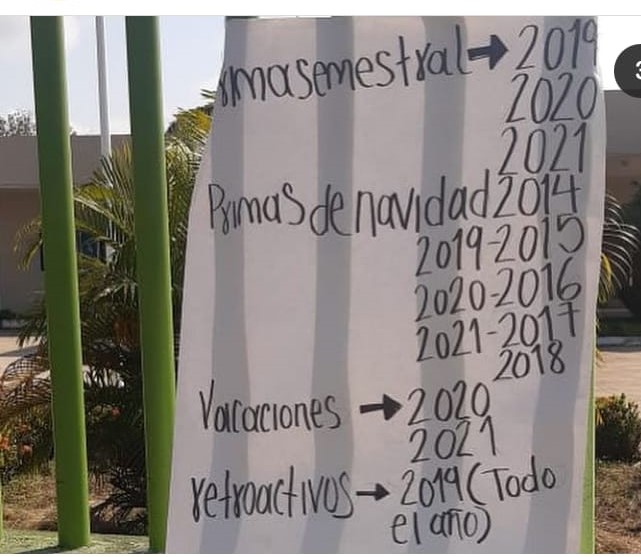 rimasemestral→2019
2020
2021
Primas de navidad 2014
2019-2015
2020-2016
2021-2017
2018
Vacaciones →2020
2021
retroactivos→2019 (Todo
el año)
3